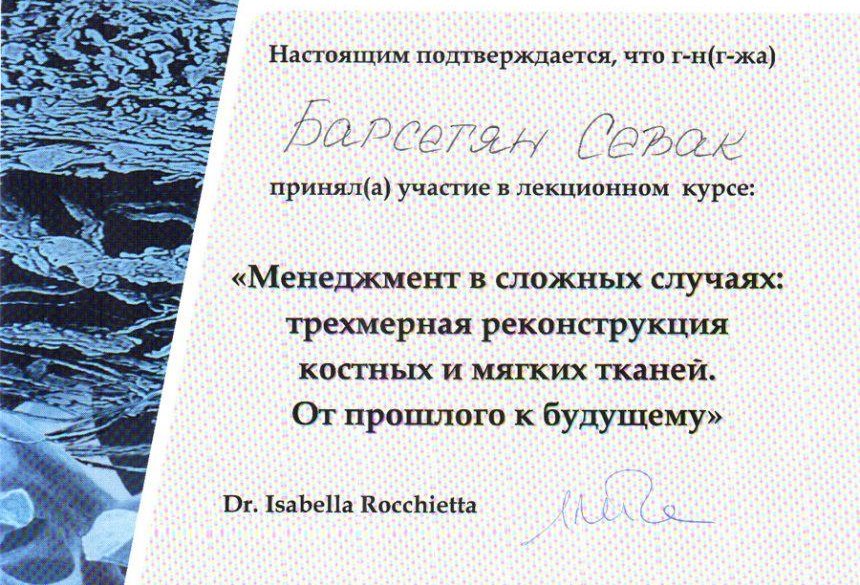 Настоящим подтверждается, что г-н(г-жа)
Барсегян Севак
принял(а) участие в лекционном курсе:
«Менеджмент в сложных случаях:
трехмерная реконструкция
костных и мягких тканей.
От прошлого к будущему»
Dr. Isabella Rocchietta